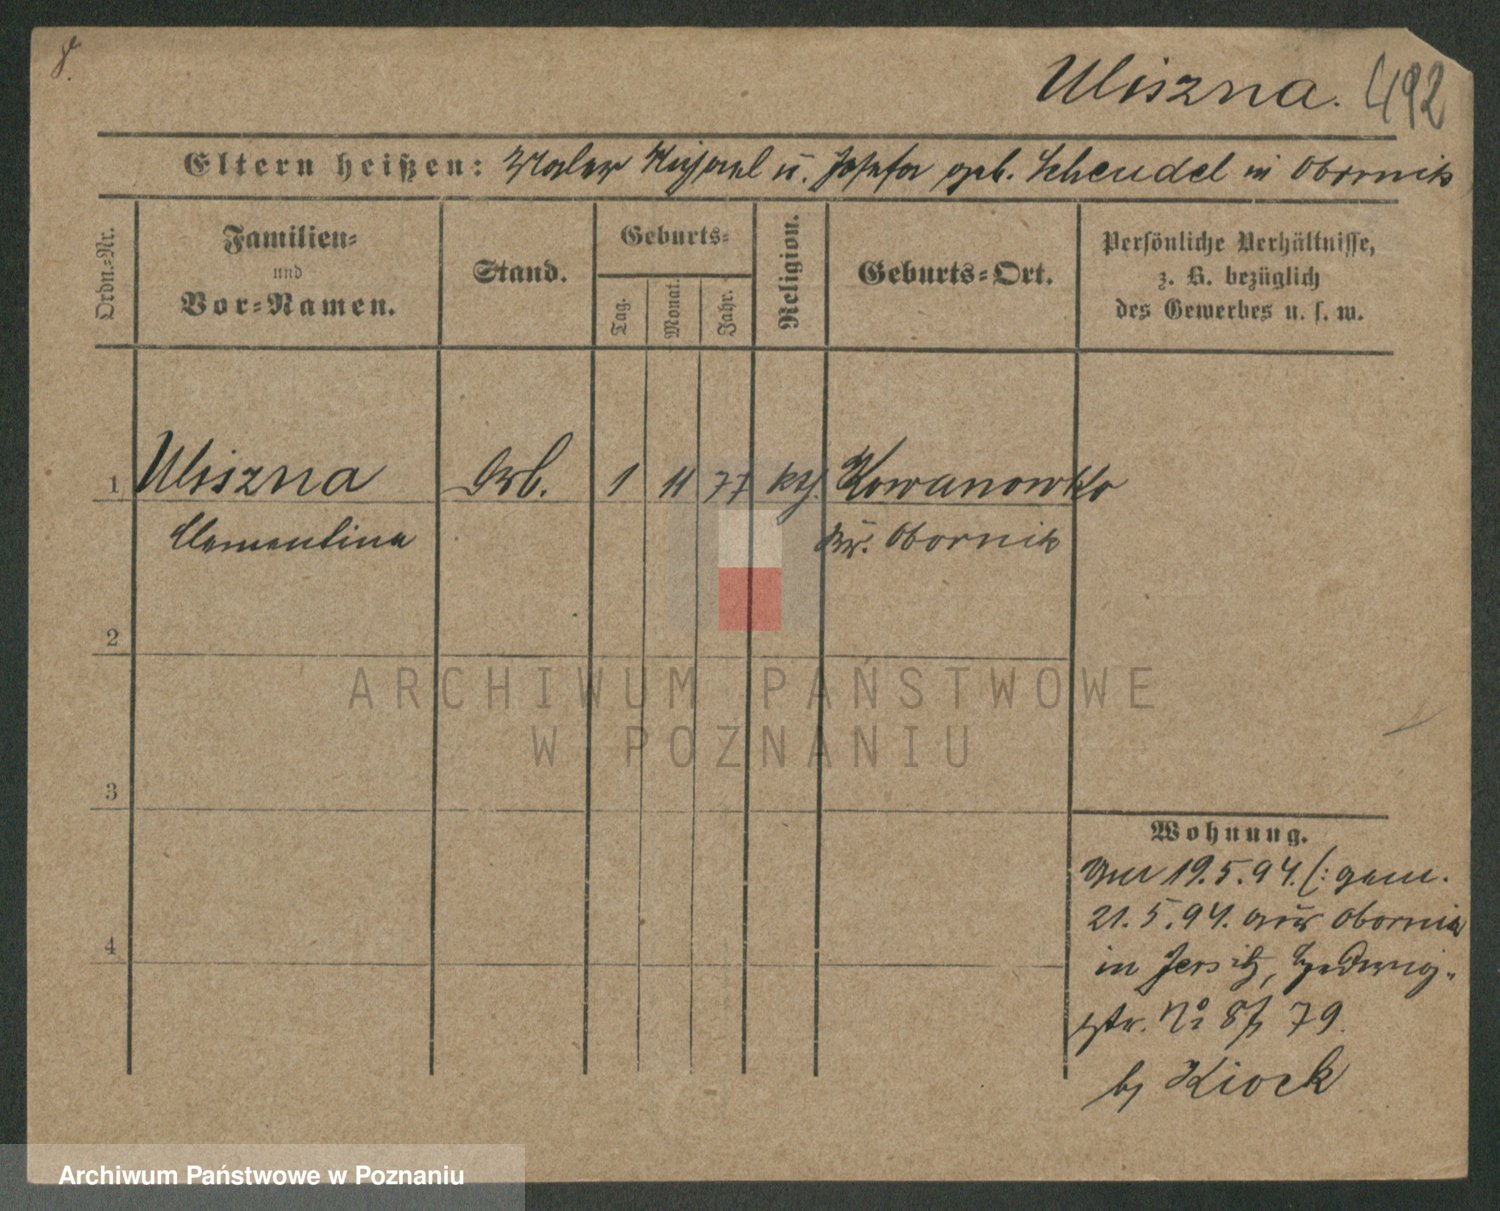 8.
Uliszna. 492
Eltern heißen: Maler Michael u. Josefa geb. Schendel in Obornik
Ordn.-Nr.
Familien-
und
Vor-Namen.
Stand.
Geburts-
Tag.
Monat.
Jahr.
Religion.
Geburts-Ort.
Persönliche Verhältnisse,
z. B. bezüglich
des Gewerbes u. s. w.
1 Uliszna Arb. 1 11 77 kth. Kowanowko
Clementina Kr. Obornik
2
ARCHIWUM PAŃSTWOWE
W POZNANIU
3
4
Wohnung.
19.5.94. (: gem.
21.5.94. aus Obornik
in Jersitz, Hedwig-
str. No 8 79.
b/ Kiock
Archiwum Państwowe w Poznaniu